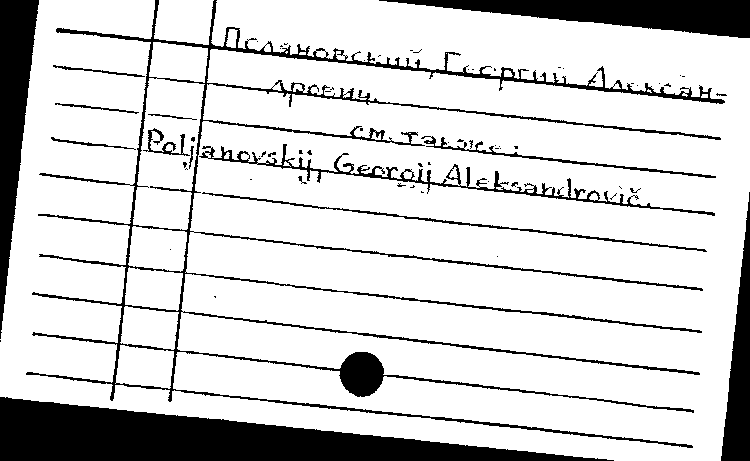 Поляновский, Георгий Алексан-
дрович.
см. также:
Poljanovskij, Georgij Aleksandrovič.